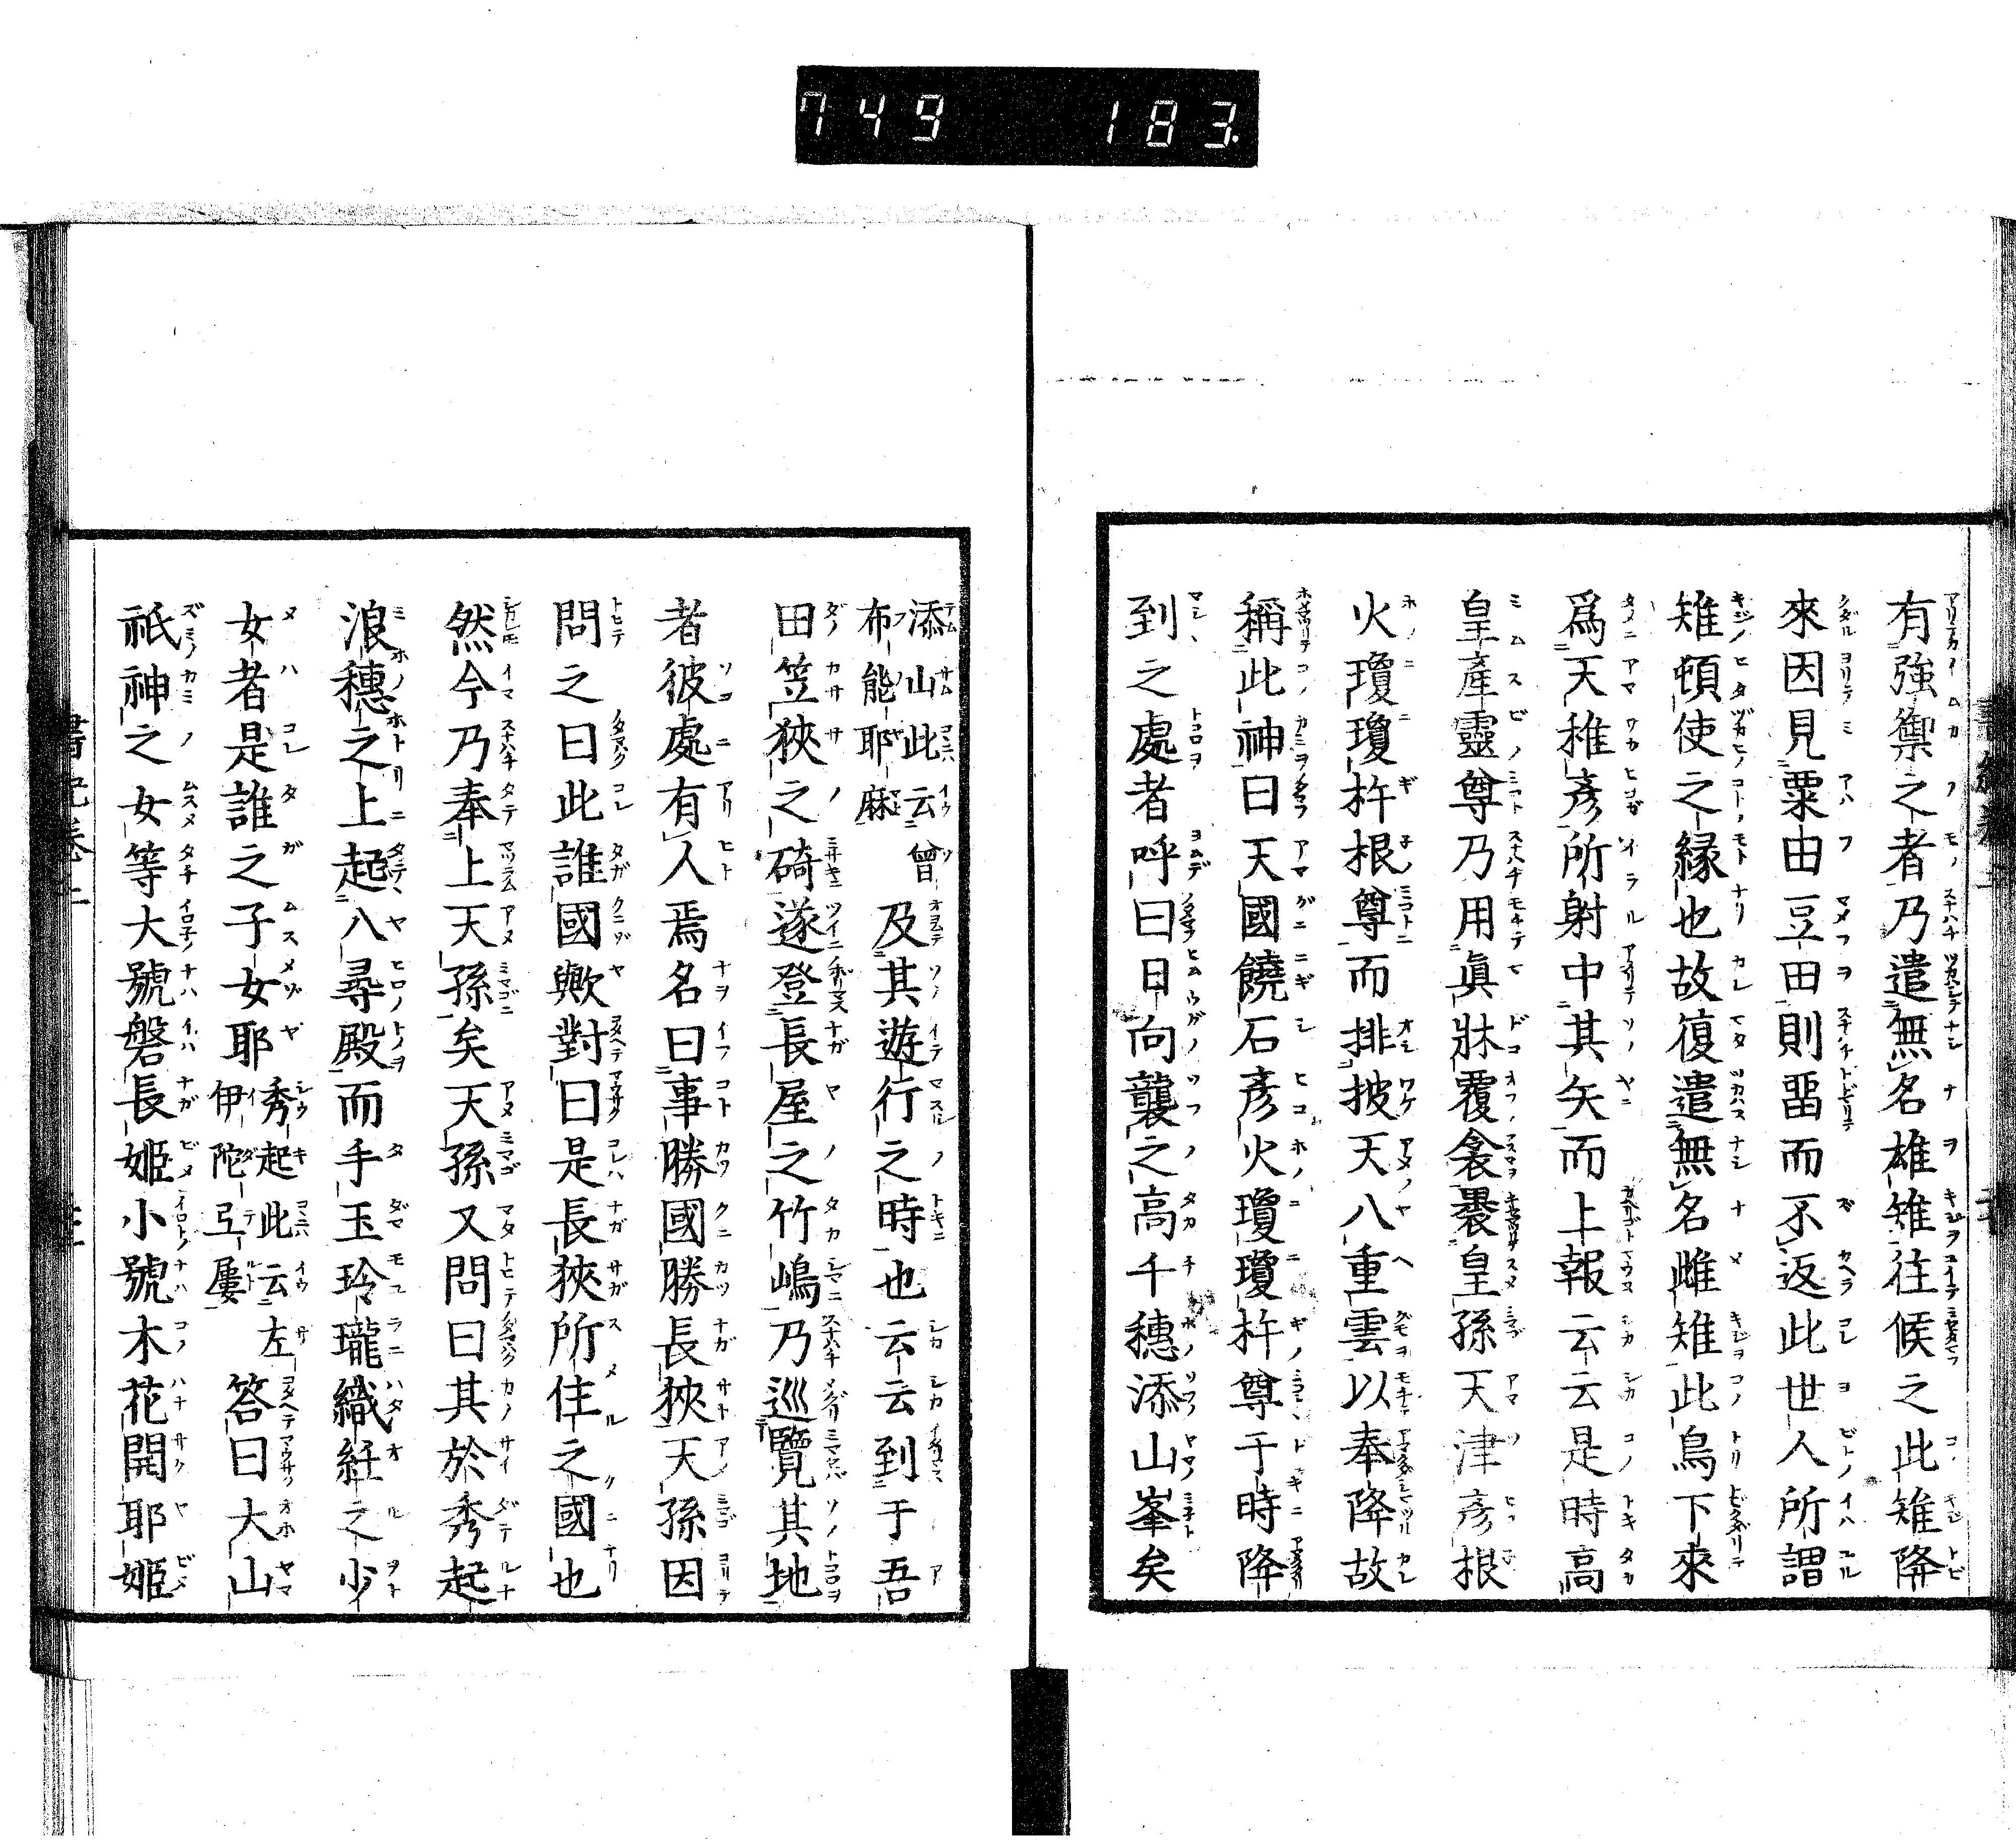 749 183.
有強禦之者乃遣無名雄雉往候之此雉降
來因見粟田豆田則畱而不返此世人所謂
雉頓使之縁也故復遣無名雌雉此鳥下來
爲天稚彥所射中其矢而上報云云是時高
皇產靈尊乃用眞牀覆衾褁皇孫天津彥根
火瓊瓊杵根尊而排披天八重雲以奉降故
稱此神曰天國饒石彥火瓊瓊杵尊于時降
到之處者呼曰日向襲之高千穗添山峯矣
添山此云曾
布能耶麻
及其遊行之時也云云到于吾
田笠狹之碕遂登長屋之竹嶋乃巡覽其地
者彼處有人焉名曰事勝國勝長狹天孫因
問之曰此誰國歟對曰是長狹所住之國也
然今乃奉上天孫矣天孫又問曰其於秀起
浪穗之上起八尋殿而手玉玲瓏織紝之少
女者是誰之子女耶
秀起此云左
伊陀弖屢
答曰大山
祇神之女等大號磐長姬小號木花開耶姬